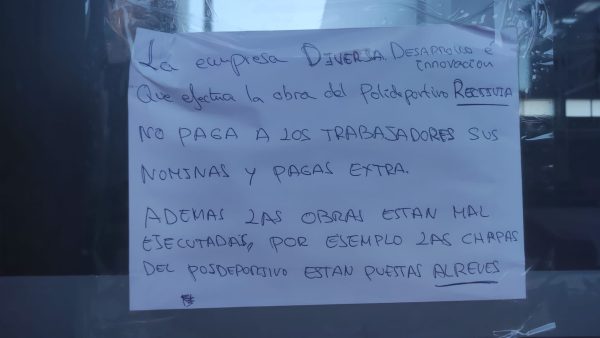 La empresa DIVERIA. DESARROLLO E
innovacion
Que efectua la obra del Polideportivo
NO PAGA A LOS TRABAJADORES SUS
NOMINAS Y PAGAS EXTRA.
ADEMAS LAS OBRAS ESTAN MAL
EJECUTADAS, POR EJEMPLO LAS CHAPAS
DEL POSDEPORTIVO ESTAN PUESTAS ALREVES